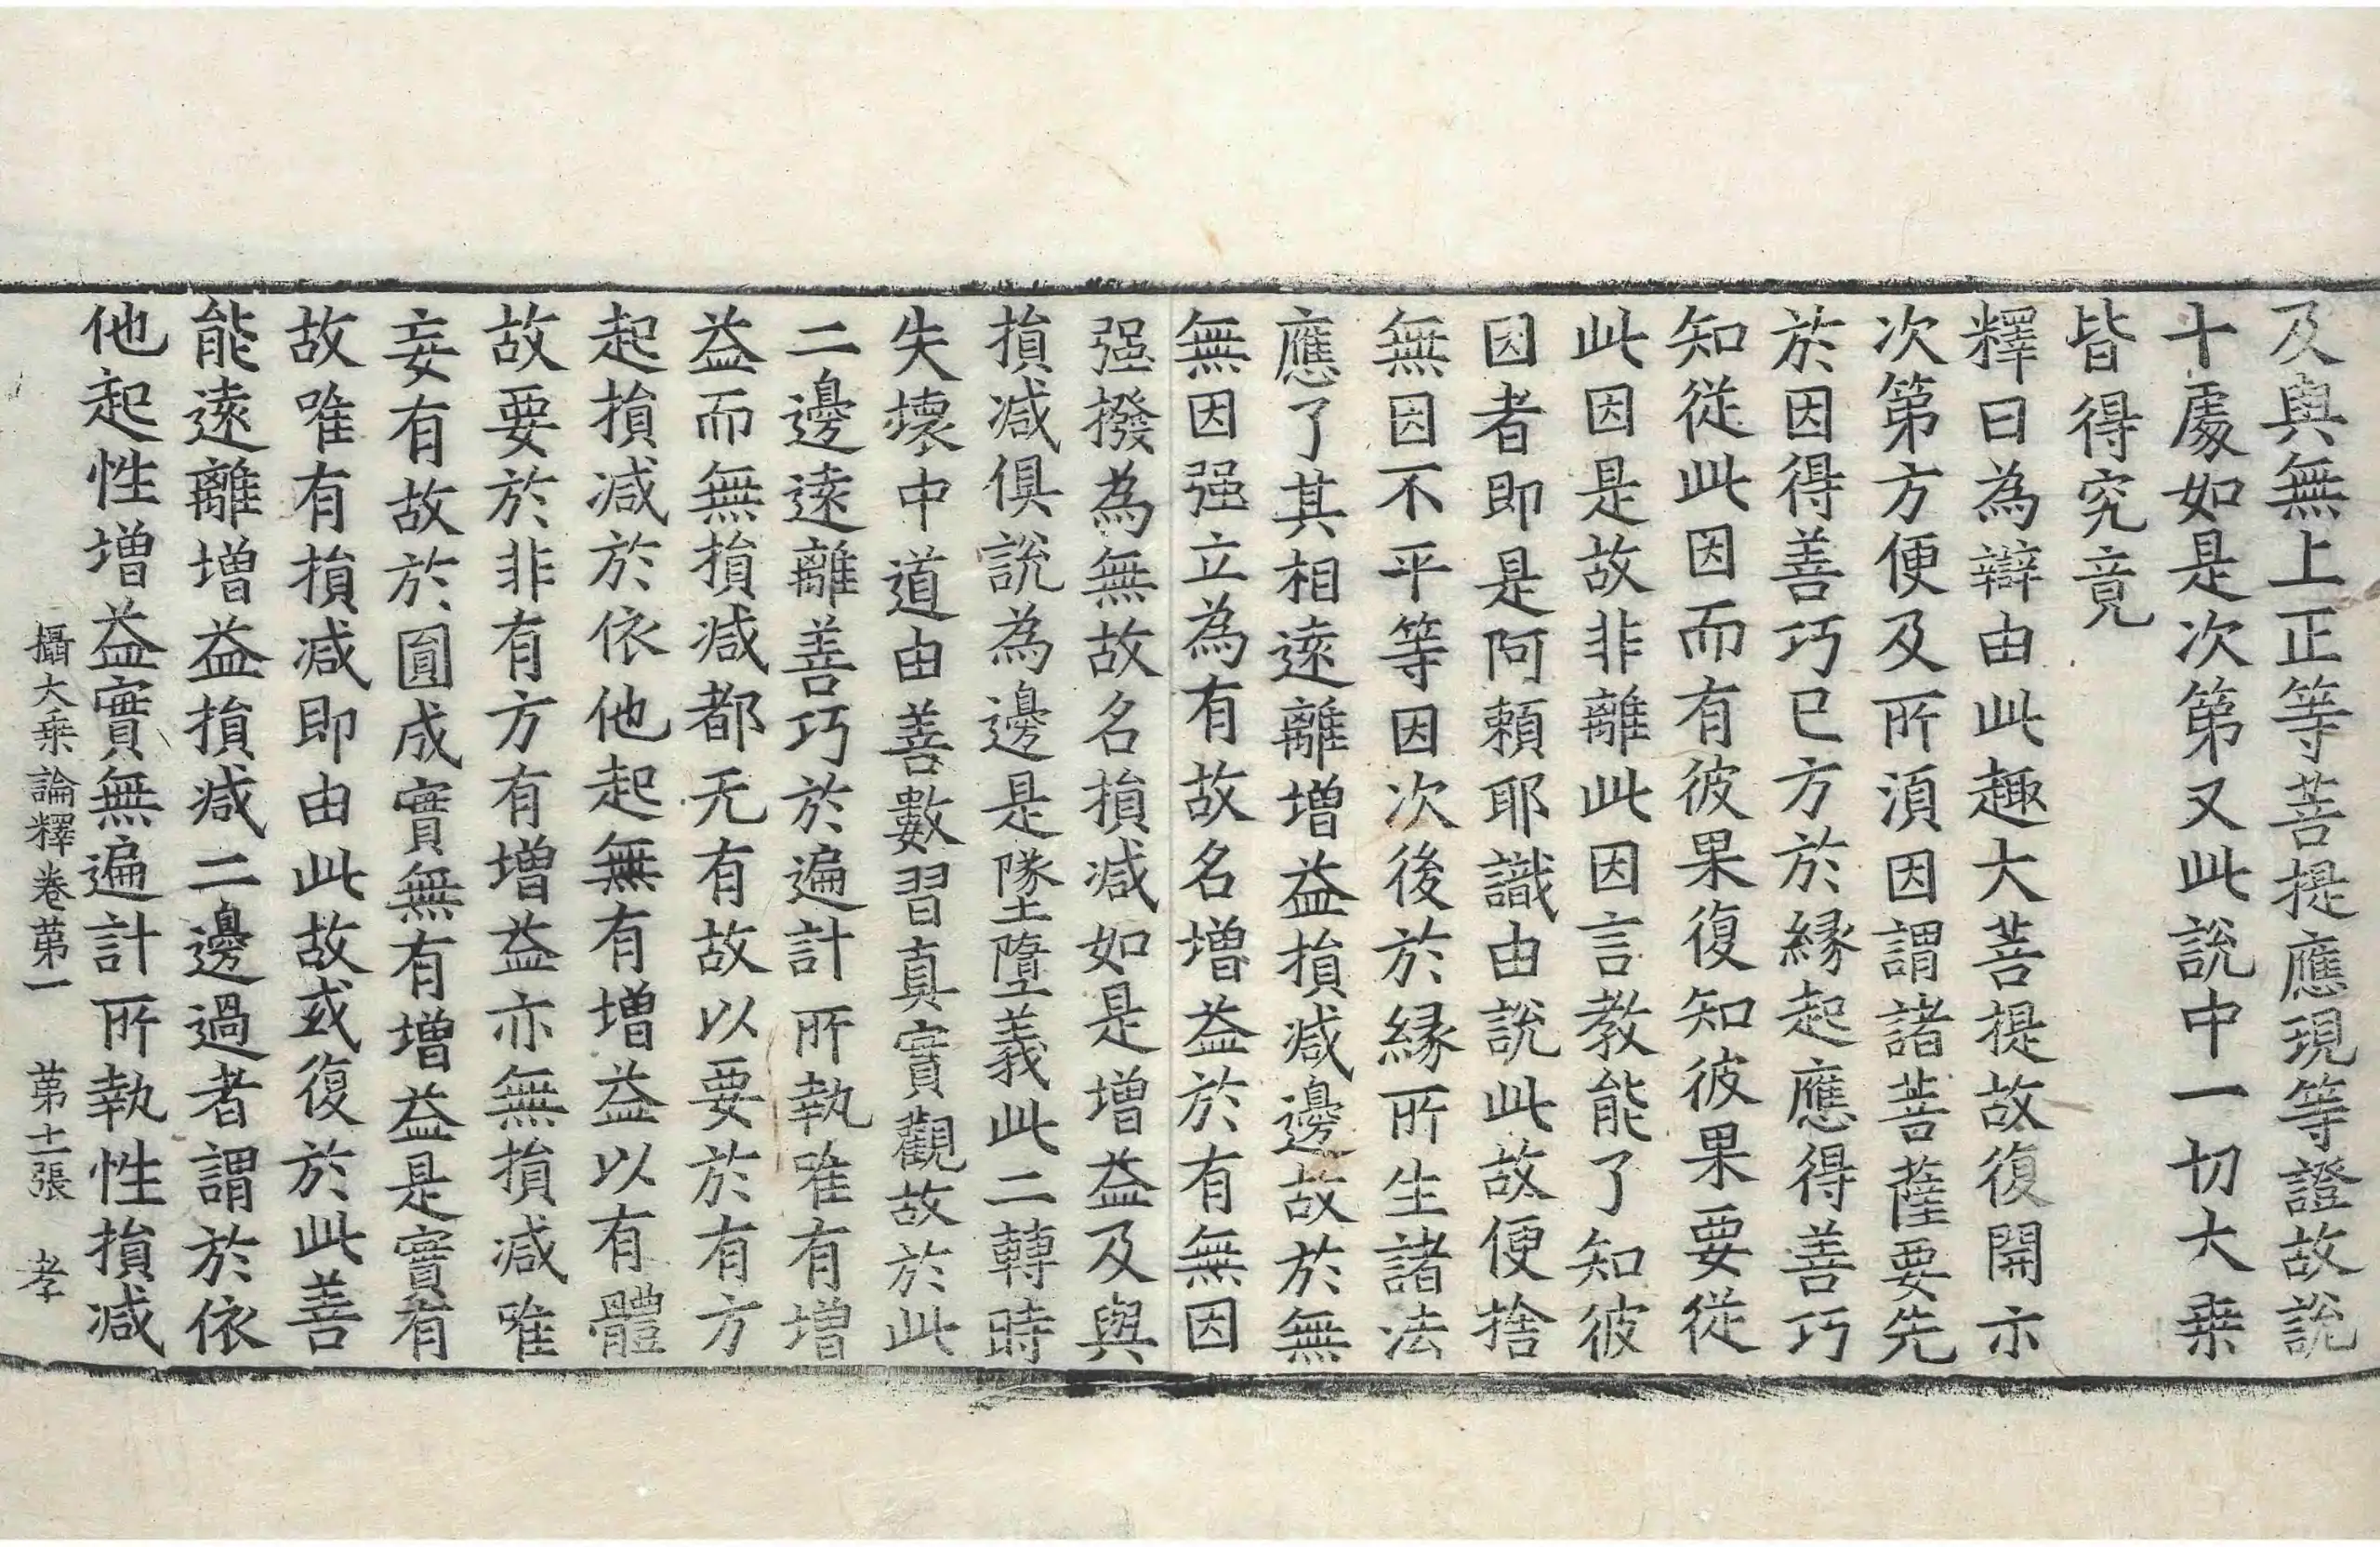 及與無上正等菩提應現等證故說
十處如是次第又此說中一切大乗
皆得究竟
釋曰為辯由此趣大菩提故復開示
次第方便及所湏因謂諸菩薩要先
於因得善巧已方於縁起應得善巧
知從此因而有彼果復知彼果要從
此因是故非離此因言教能了知彼
因者即是阿賴耶識由說此故便捨
無因不平等因次後於縁所生諸法
應了其相遠離增益損减邊故於無
無因强立為有故名增益於有無因
强撥為無故名損减如是增益及與
損减俱說為邊是墜墮義此二轉時
失壞中道由善數習真實觀故於此
二邊遠離善巧於遍計所執唯有增
益而無損减都无有故以要於有方
起損减於依他起無有增益以有體
故要於非有方有增益亦無損减唯
妄有故於圓成實無有增益是實有
故唯有損减即由此故或復於此善
能遠離增益損减二邊過者謂於依
他起性增益實無遍計所執性損减
攝大乗論釋卷第一　第十一張　孝